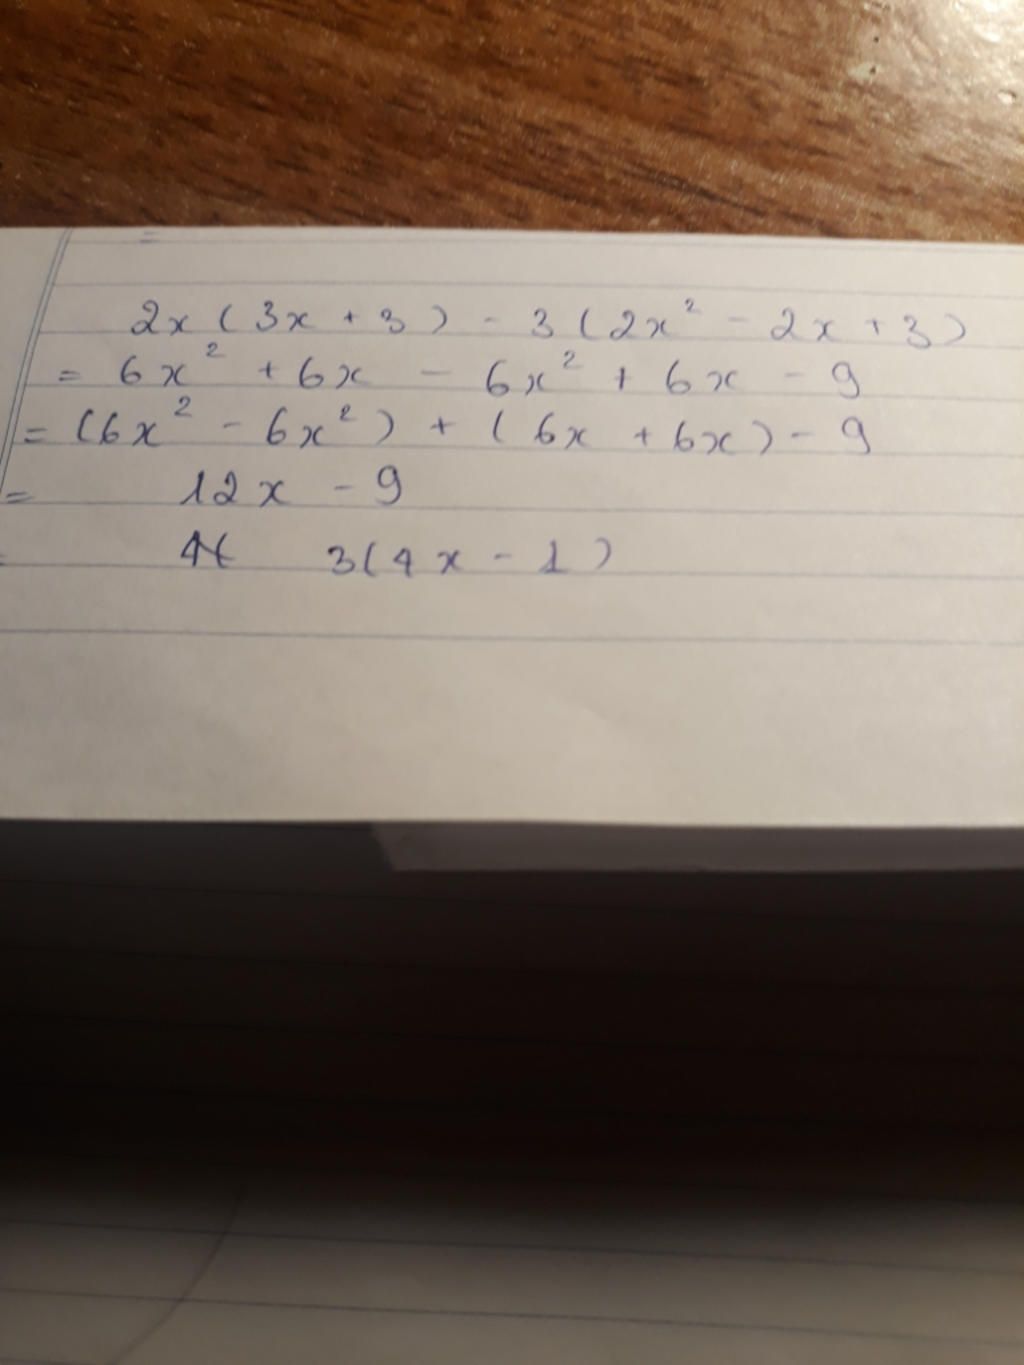 =
2x(3x+3) - 3(2x² - 2x+3)
= 6x² + 6x - 6x² + 6x - 9
= (6x² - 6x²) + (6x + 6x) - 9
= 12x - 9
= 3(4x - 1)